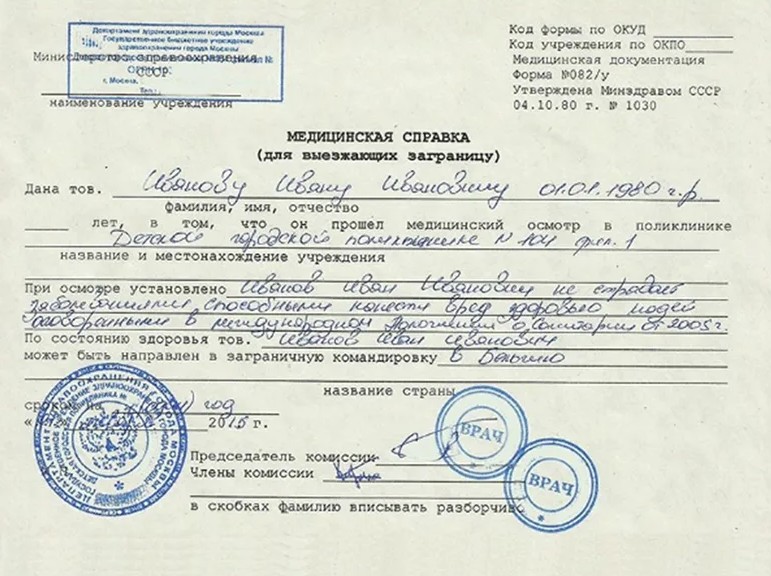 Департамент здравоохранения города Москвы
Государственное бюджетное учреждение
здравоохранения города Москвы
г. Москва,
Тел.:
Министерство здравоохранения
СССР
наименование учреждения
Код формы по ОКУД
Код учреждения по ОКПО
Медицинская документация
Форма №082/у
Утверждена Минздравом СССР
04.10.80 г. № 1030
МЕДИЦИНСКАЯ СПРАВКА
(для выезжающих заграницу)
Дана тов. Иванову Ивану Ивановичу 01.01.1980 г.р.
фамилия, имя, отчество
лет, в том, что он прошел медицинский осмотр в поликлинике
Детской городской поликлинике N 104 фил. 1
название и местонахождение учреждения
При осмотре установлено Иванов Иван Иванович не страдает
заболеваниями способными нанести вред здоровью людей
оговоренными в международном Положении о Санитарии от 2005 г.
По состоянию здоровья тов. Иванов Иван Иванович
может быть направлен в заграничную командировку в Бельгию
название страны
сроком на год
2015 г.
Председатель комиссии
Члены комиссии
в скобках фамилию вписывать разборчиво
ВРАЧ
ВРАЧ